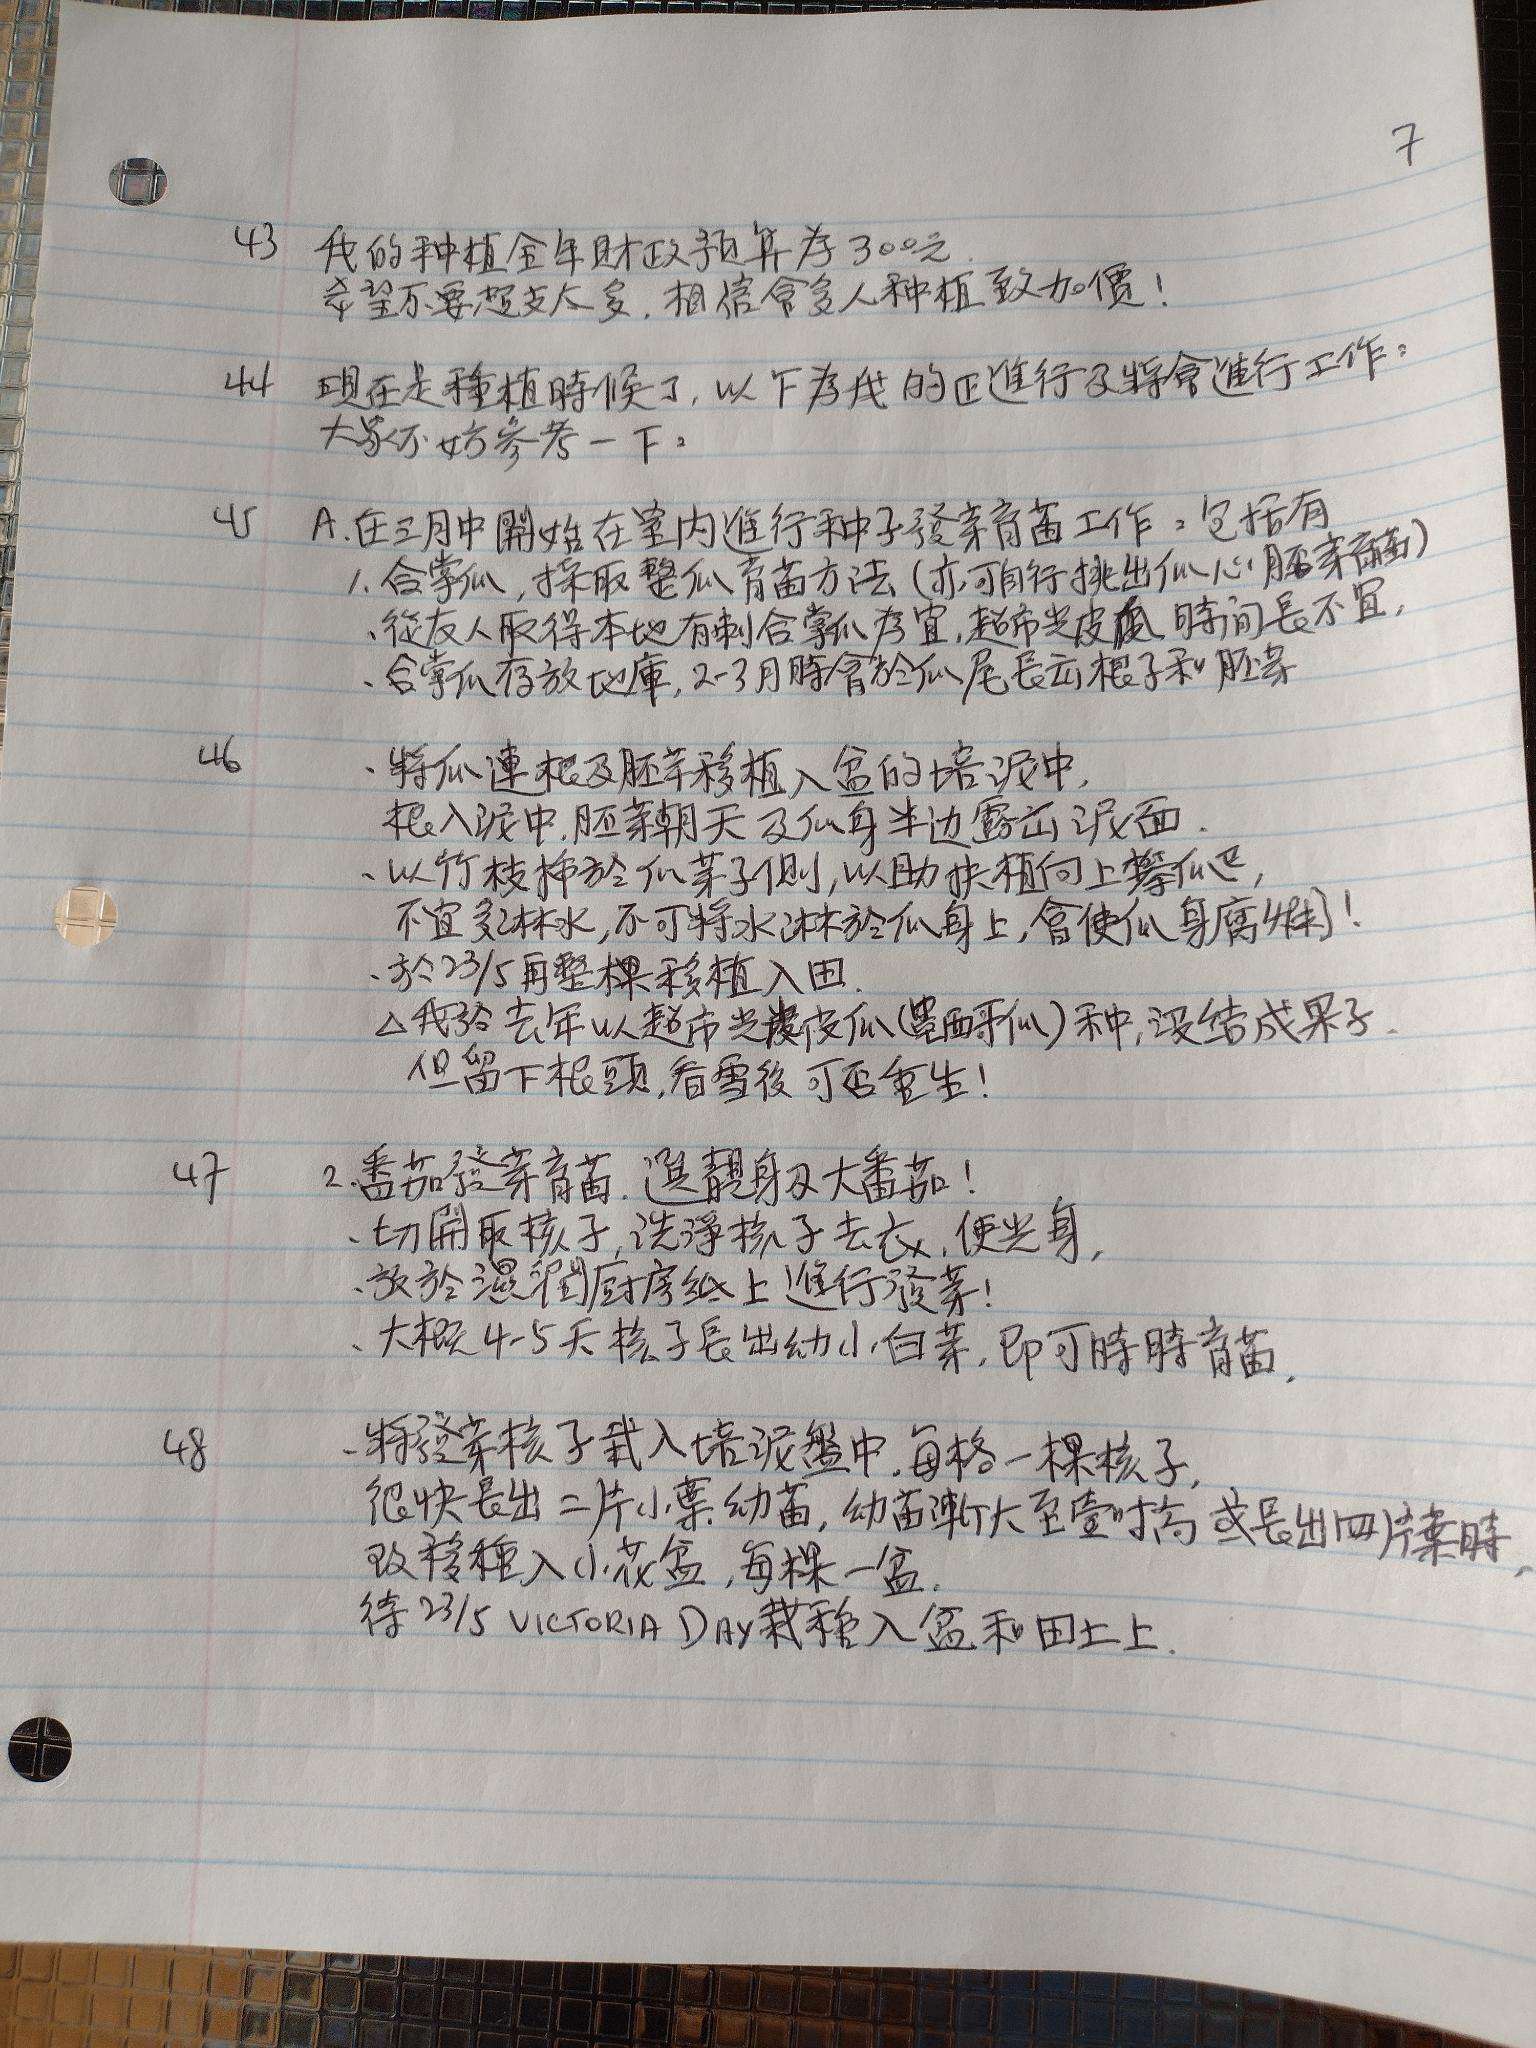 7
43 我的种植全年財政預算为300元.
希望不要超支太多, 相信會多人种植致加價!
44 現在是種植時候了, 以下为我的正進行及將會進行工作:
大家不妨參考一下:
45 A.在三月中開始在室内進行种子發芽育苗工作:包括有
1.合掌瓜, 採取整瓜育苗方法(亦可自行挑出瓜心胚芽育苗)
、從友人取得本地有刺合掌瓜为宜, 超市光皮瓜時间長不宜,
、合掌瓜存放地庫, 2-3月時會於瓜尾長出根子和胚芽
46 、將瓜連根及胚芽移植入盆的培泥中,
根入泥中, 胚芽朝天及瓜身半边露出泥面.
、以竹枝揷於瓜芽子側, 以助扶植向上攀爬,
不宜多淋水, 不可將水淋於瓜身上, 會使瓜身腐爛!
、於23/5再整棵移植入田.
△我於去年以超市光皮瓜(墨西哥瓜)种, 沒结成果子.
但留下根頭, 看雪後可否重生!
47 2.番茄發芽育苗. 選靚身及大番茄!
、切開取核子, 洗淨核子去衣, 使光身,
、放於濕潤厨房紙上進行發芽!
、大概4-5天核子長出幼小白芽, 即可時時育苗,
48 、將發芽核子栽入培泥盤中, 每格一棵核子,
很快長出二片小葉幼苗, 幼苗漸大至壹吋高或長出四片葉時,
改移種入小花盆, 每棵一盆.
待23/5 VICTORIA DAY栽種入盆和田土上.